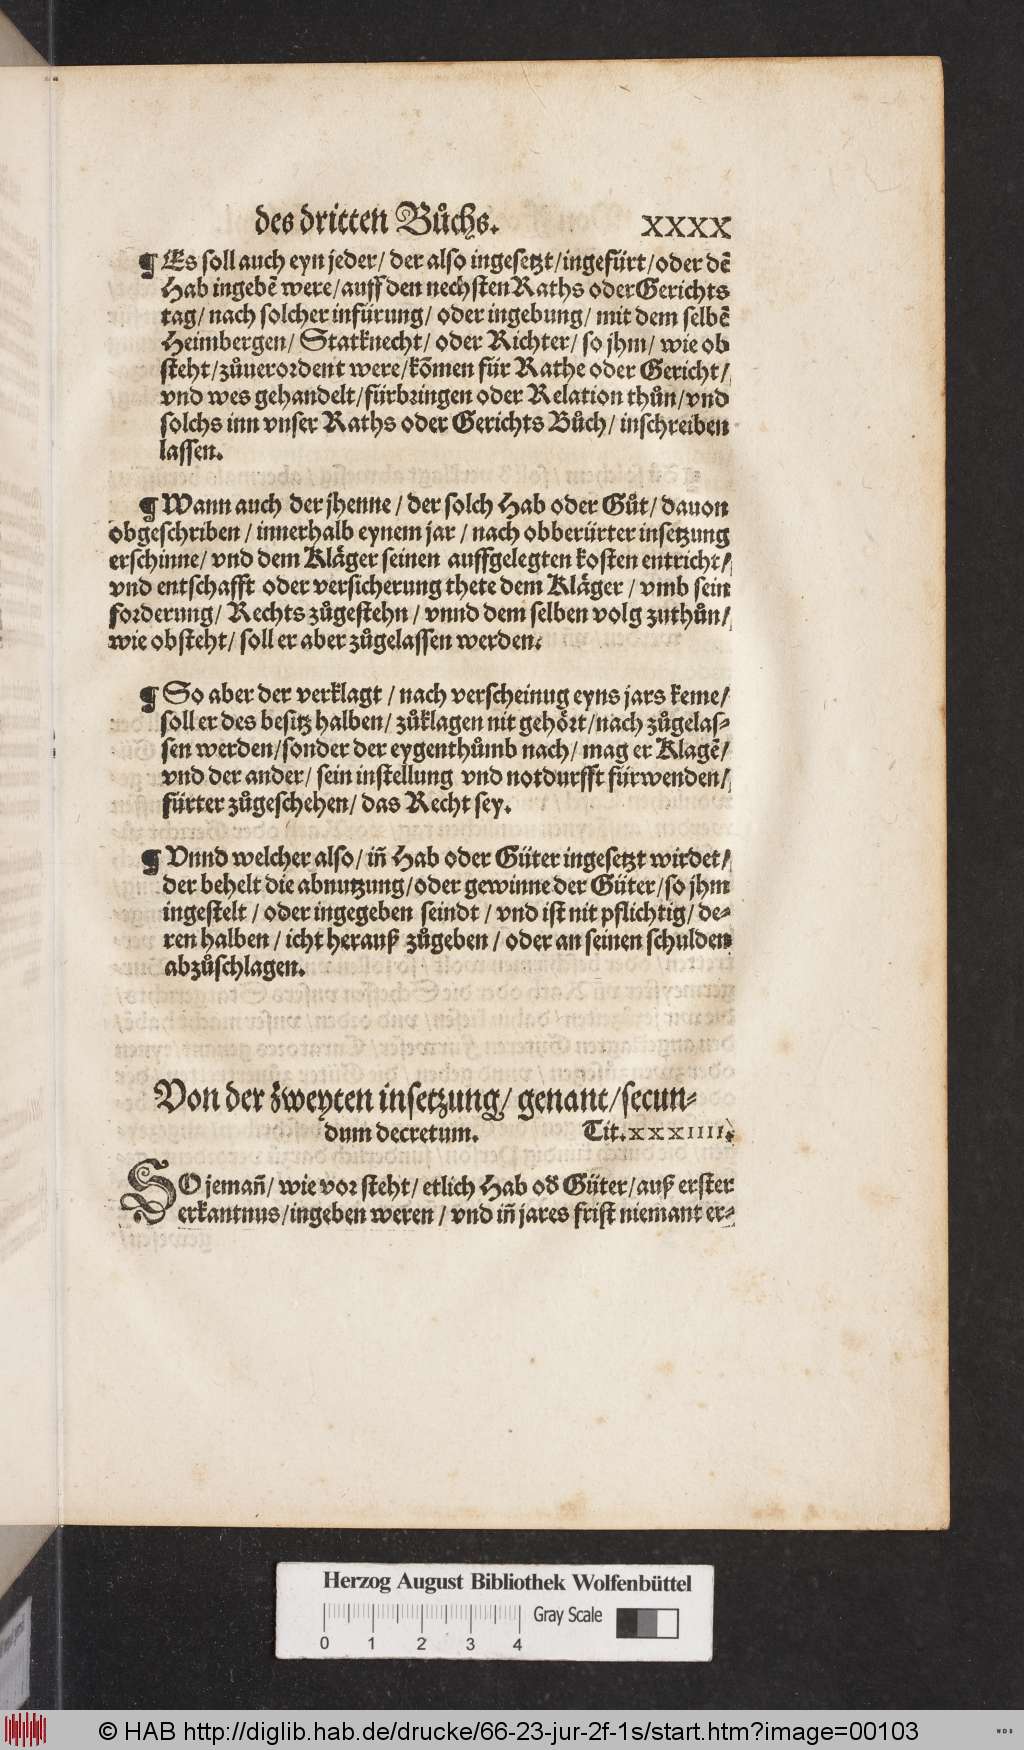 des dritten Bůchs. XXXX
¶ Es soll auch eyn jeder/ der also ingesetzt/ingefürt/oder dẽ
Hab ingebẽ were/auff den nechsten Raths oder Gerichts
tag/ nach solcher infürung/ oder ingebung/ mit dem selbẽ
Heimbergen/ Statknecht/ oder Richter/ so jhm/ wie ob
steht/zůuerordent were/kõmen für Rathe oder Gericht/
vnd wes gehandelt/fürbringen oder Relation thůn/vnd
solchs inn vnser Raths oder Gerichts Bůch/ inschreiben
lassen.
¶ Wann auch der jhenne / der solch Hab oder Gůt/ dauon
obgeschriben / innerhalb eynem jar / nach obberürter insetzung
erschinne/ vnd dem Kläger seinen auffgelegten kosten entricht/
vnd entschafft oder versicherung thete dem Kläger / vmb sein
forderung/ Rechts zůgestehn / vnnd dem selben volg zuthůn/
wie obsteht/ soll er aber zůgelassen werden.
¶ So aber der verklagt / nach verscheinug eyns jars keme/
soll er des besitz halben/ zůklagen nit gehört/nach zůgelas-
sen werden/sonder der eygenthůmb nach/ mag er Klagẽ/
vnd der ander/ sein instellung vnd notdurfft fürwenden/
fürter zůgeschehen/ das Recht sey.
¶ Vnnd welcher also/ iñ Hab oder Güter ingesetzt wirdet/
der behelt die abnutzung/oder gewinne der Güter/so jhm
ingestelt / oder ingegeben seindt / vnd ist nit pflichtig/ de-
ren halben / icht herauß zůgeben / oder an seinen schulden
abzůschlagen.
Von der zweyten insetzung/ genant/secun-
dum decretum. Tit.xxxiiii.
SO jemañ/ wie vor steht/ etlich Hab oď Güter/auß erster
erkantnus/ingeben weren / vnd iñ jares frist niemant er-
Herzog August Bibliothek Wolfenbüttel
Gray Scale
0 1 2 3 4
© HAB http://diglib.hab.de/drucke/66-23-jur-2f-1s/start.htm?image=00103